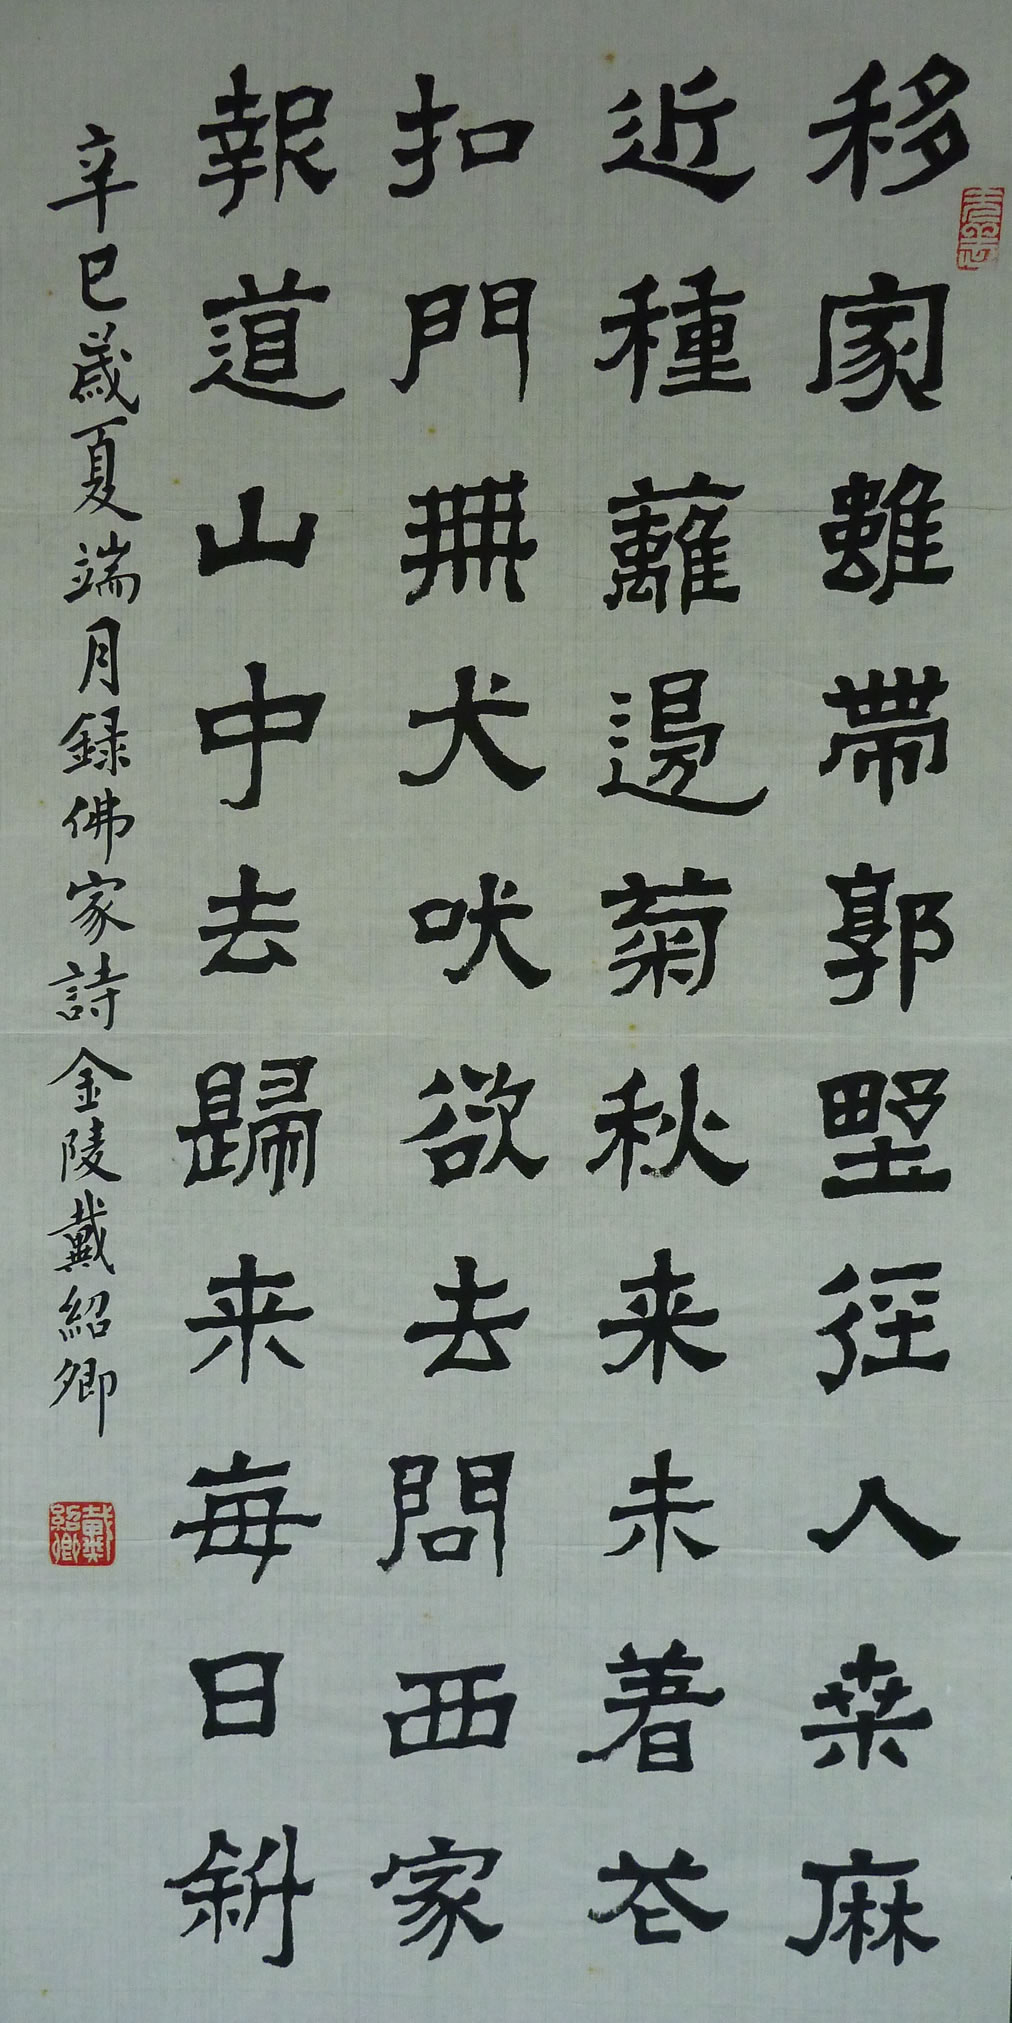 移家雖帶郭野徑入桑麻
近種蘺邊菊秋来未着花
扣門無犬吠欲去問西家
報道山中去歸来每日斜
辛巳歲夏端月録佛家詩金陵戴紹卿
戴紹卿